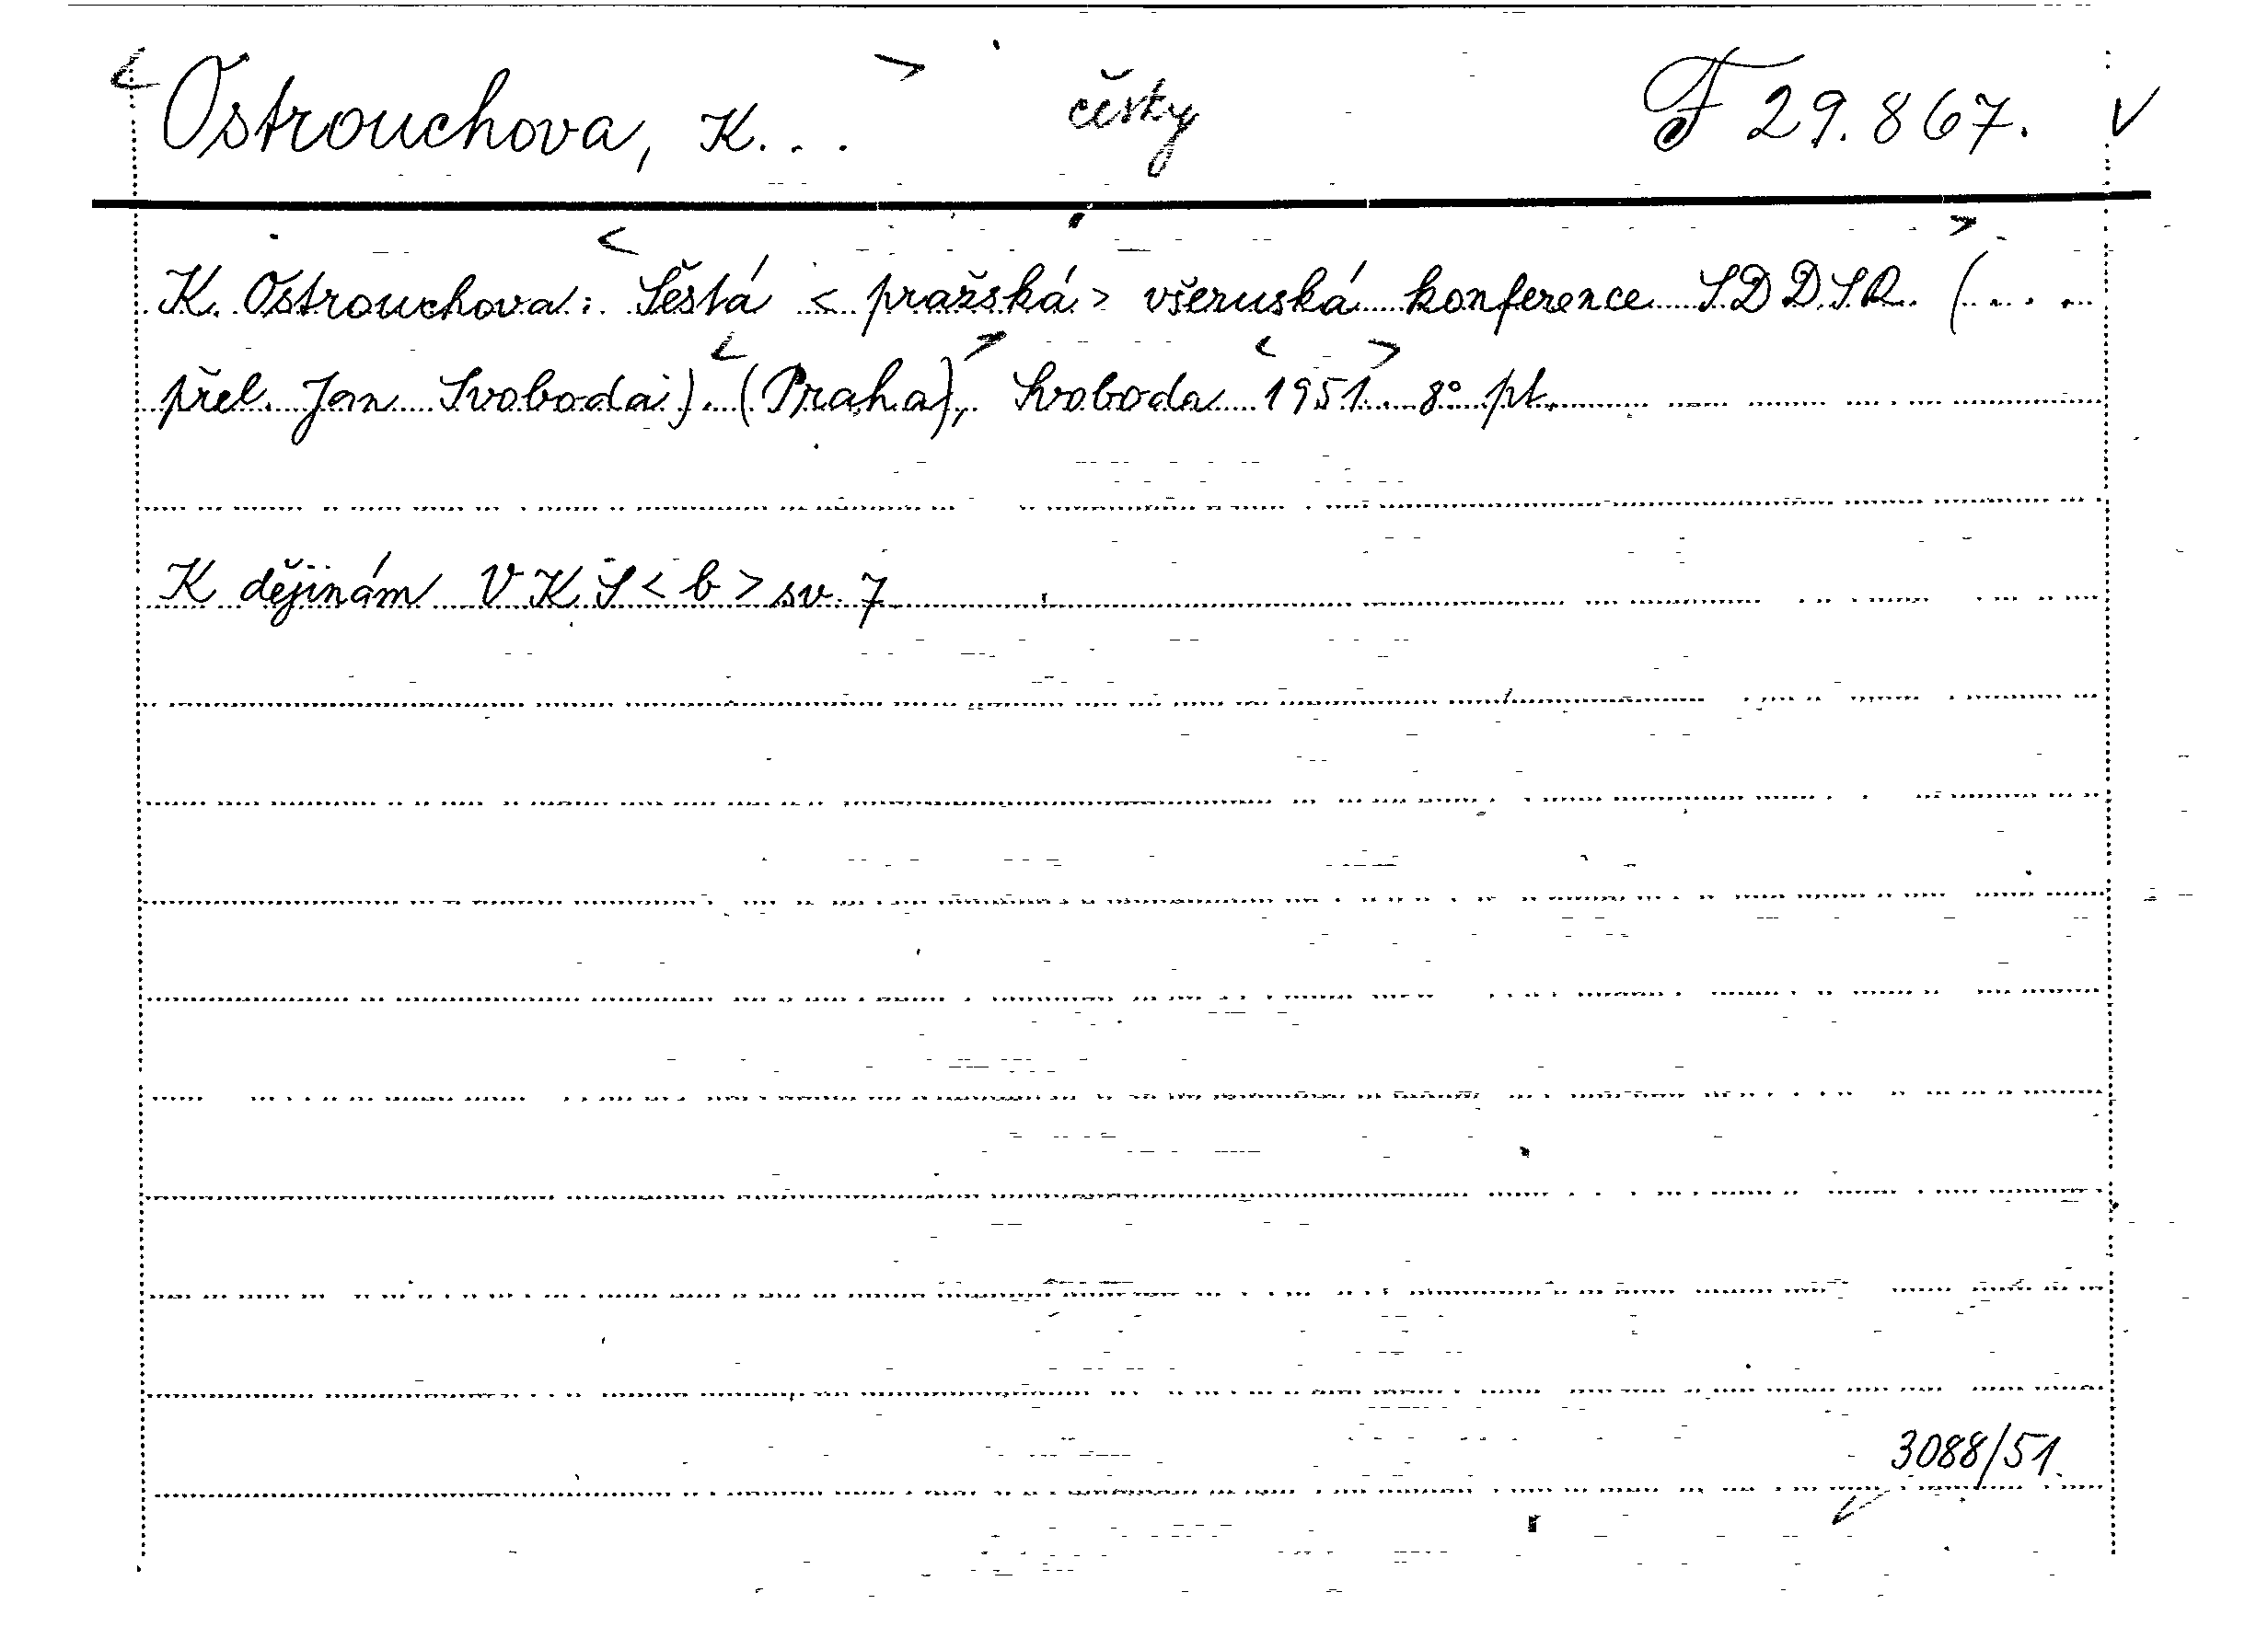 <Ostrouchova, K...> česky F 29.867. V
K. Ostrouchova: <Šestá <pražská> všeruská konference SDDSR.> (...
přel. Jan Svoboda). <(Praha)>, Svoboda <1951>. 8° pt.
K dějinám VKS<b> sv. 7
3088/51.